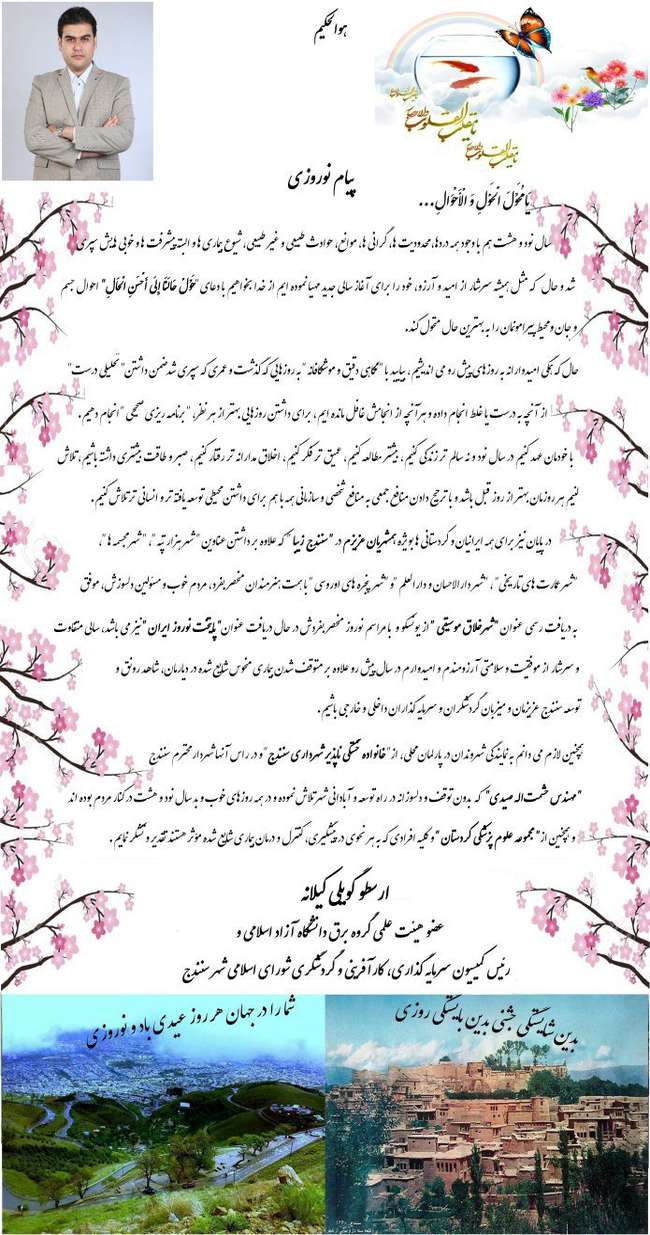 هوالحکیم
یا مقلب القلوب
یا مقلب القلوب
پیام نوروزی
یا مُحَوِّلَ الْحَوْلِ وَ الْأَحْوَالِ...
سال نود و هشت هم با وجود همه دردها، محدودیت ها، گرانی ها، موانع، حوادث طبیعی و غیر طبیعی، شیوع بیماری ها و البته پیشرفت ها و خوبی هایش سپری
شد و حال که مثل همیشه سرشار از امید و آرزو، خود را برای آغاز سالی جدید مهیا نموده ایم از خدا بخواهیم با دعای "حَوِّلْ حَالَنَا إِلَى أَحْسَنِ الْحَالِ" احوال جسم
و جان و محیط پیرامونمان را به بهترین حال متحول کند.
حال که همگی امیدوارانه به روزهای پیش رو می اندیشیم، بیایید با "نگاهی دقیق و موشکافانه" به روزهایی که گذشت و عمری که سپری شد ضمن داشتن "تحلیلی درست"
از آنچه به درست یا غلط انجام داده و هر آنچه از انجامش غافل مانده ایم، برای داشتن روزهایی بهتر از هر نظر، "برنامه ریزی صحیحی" انجام دهیم.
با خودمان عهد کنیم در سال نود و نه سالم تر زندگی کنیم، بیشتر مطالعه کنیم، عمیق تر فکر کنیم، اخلاق مدارانه تر رفتار کنیم، صبر و طاقت بیشتری داشته باشیم، تلاش
کنیم هر روزمان بهتر از روز قبل باشد و با ترجیح دادن منافع جمعی به منافع شخصی و سازمانی همه با هم برای داشتن محیطی توسعه یافته تر و انسانی تر تلاش کنیم.
در پایان نیز برای همه ایرانیان و کردستانی ها بویژه همشهریان عزیزم در "سنندج زیبا" که علاوه بر داشتن عناوین "شهر هزار تپه"، "شهر مجسمه ها"،
"شهر عمارت های تاریخی"، "شهر دارالاحسان و دارالعلم" و "شهر پنجره های اوروسی" با همت هنرمندان منحصر بفرد، مردم خوب و مسئولین دلسوزش، موفق
به دریافت رسمی عنوان "شهر خلاق موسیقی" از یونسکو و با مراسم نوروز منحصر بفردش در حال دریافت عنوان "پایتخت نوروز ایران" نیز می باشد، سالی متفاوت
و سرشار از موفقیت و سلامتی آرزومندم و امیدوارم در سال پیش رو علاوه بر متوقف شدن بیماری منحوس شایع شده در دیارمان، شاهد رونق و
توسعه سنندج عزیزمان و میزبان گردشگران و سرمایه گذاران داخلی و خارجی باشیم.
همچنین لازم می دانم به نمایندگی شهروندان در پارلمان محلی، از "خانواده خستگی ناپذیر شهرداری سنندج" و در راس آنها شهردار محترم سنندج
"مهندس حشمت اله صیدی" که بدون توقف و دلسوزانه در راه توسعه و آبادانی شهر تلاش نموده و در همه روزهای خوب و بد سال نود و هشت در کنار مردم بوده اند
و همچنین از "مجموعه علوم پزشکی کردستان" و کلیه افرادی که به هر نحوی در پیشگیری، کنترل و درمان بیماری شایع شده مؤثر هستند تقدیر و تشکر نمایم.
ارسطو گویلی کیلانه
عضو هیئت علمی گروه برق دانشگاه آزاد اسلامی و
رئیس کمیسیون سرمایه گذاری، کارآفرینی و گردشگری شورای اسلامی شهر سنندج
بدین شایستگی جشنی بدین بایستگی روزی
شما را در جهان هر روز عیدی باد و نوروزی